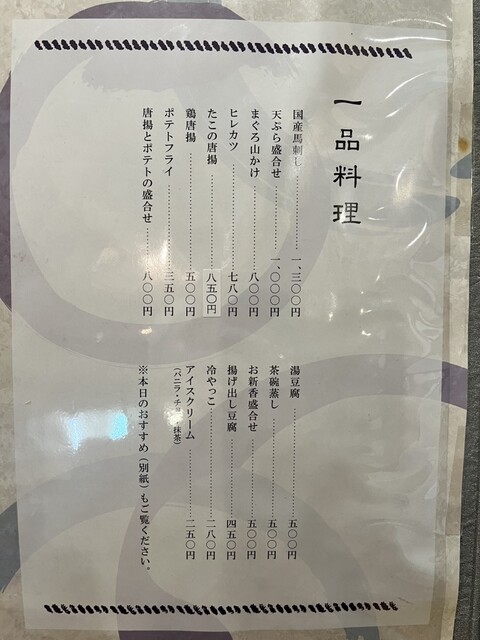 一品料理
国産馬刺し…………一、三〇〇円
天ぷら盛合せ…………一、〇〇〇円
まぐろ山かけ…………八〇〇円
ヒレカツ…………七八〇円
たこの唐揚…………八五〇円
鶏唐揚…………五〇〇円
ポテトフライ…………三五〇円
唐揚とポテトの盛合せ………八〇〇円
湯豆腐…………五〇〇円
茶碗蒸し…………五〇〇円
お新香盛合せ…………五〇〇円
揚げ出し豆腐…………四五〇円
冷やっこ…………二八〇円
アイスクリーム…………二五〇円
(バニラ・チョ 抹茶)
※本日のおすすめ(別紙)もご覧ください。